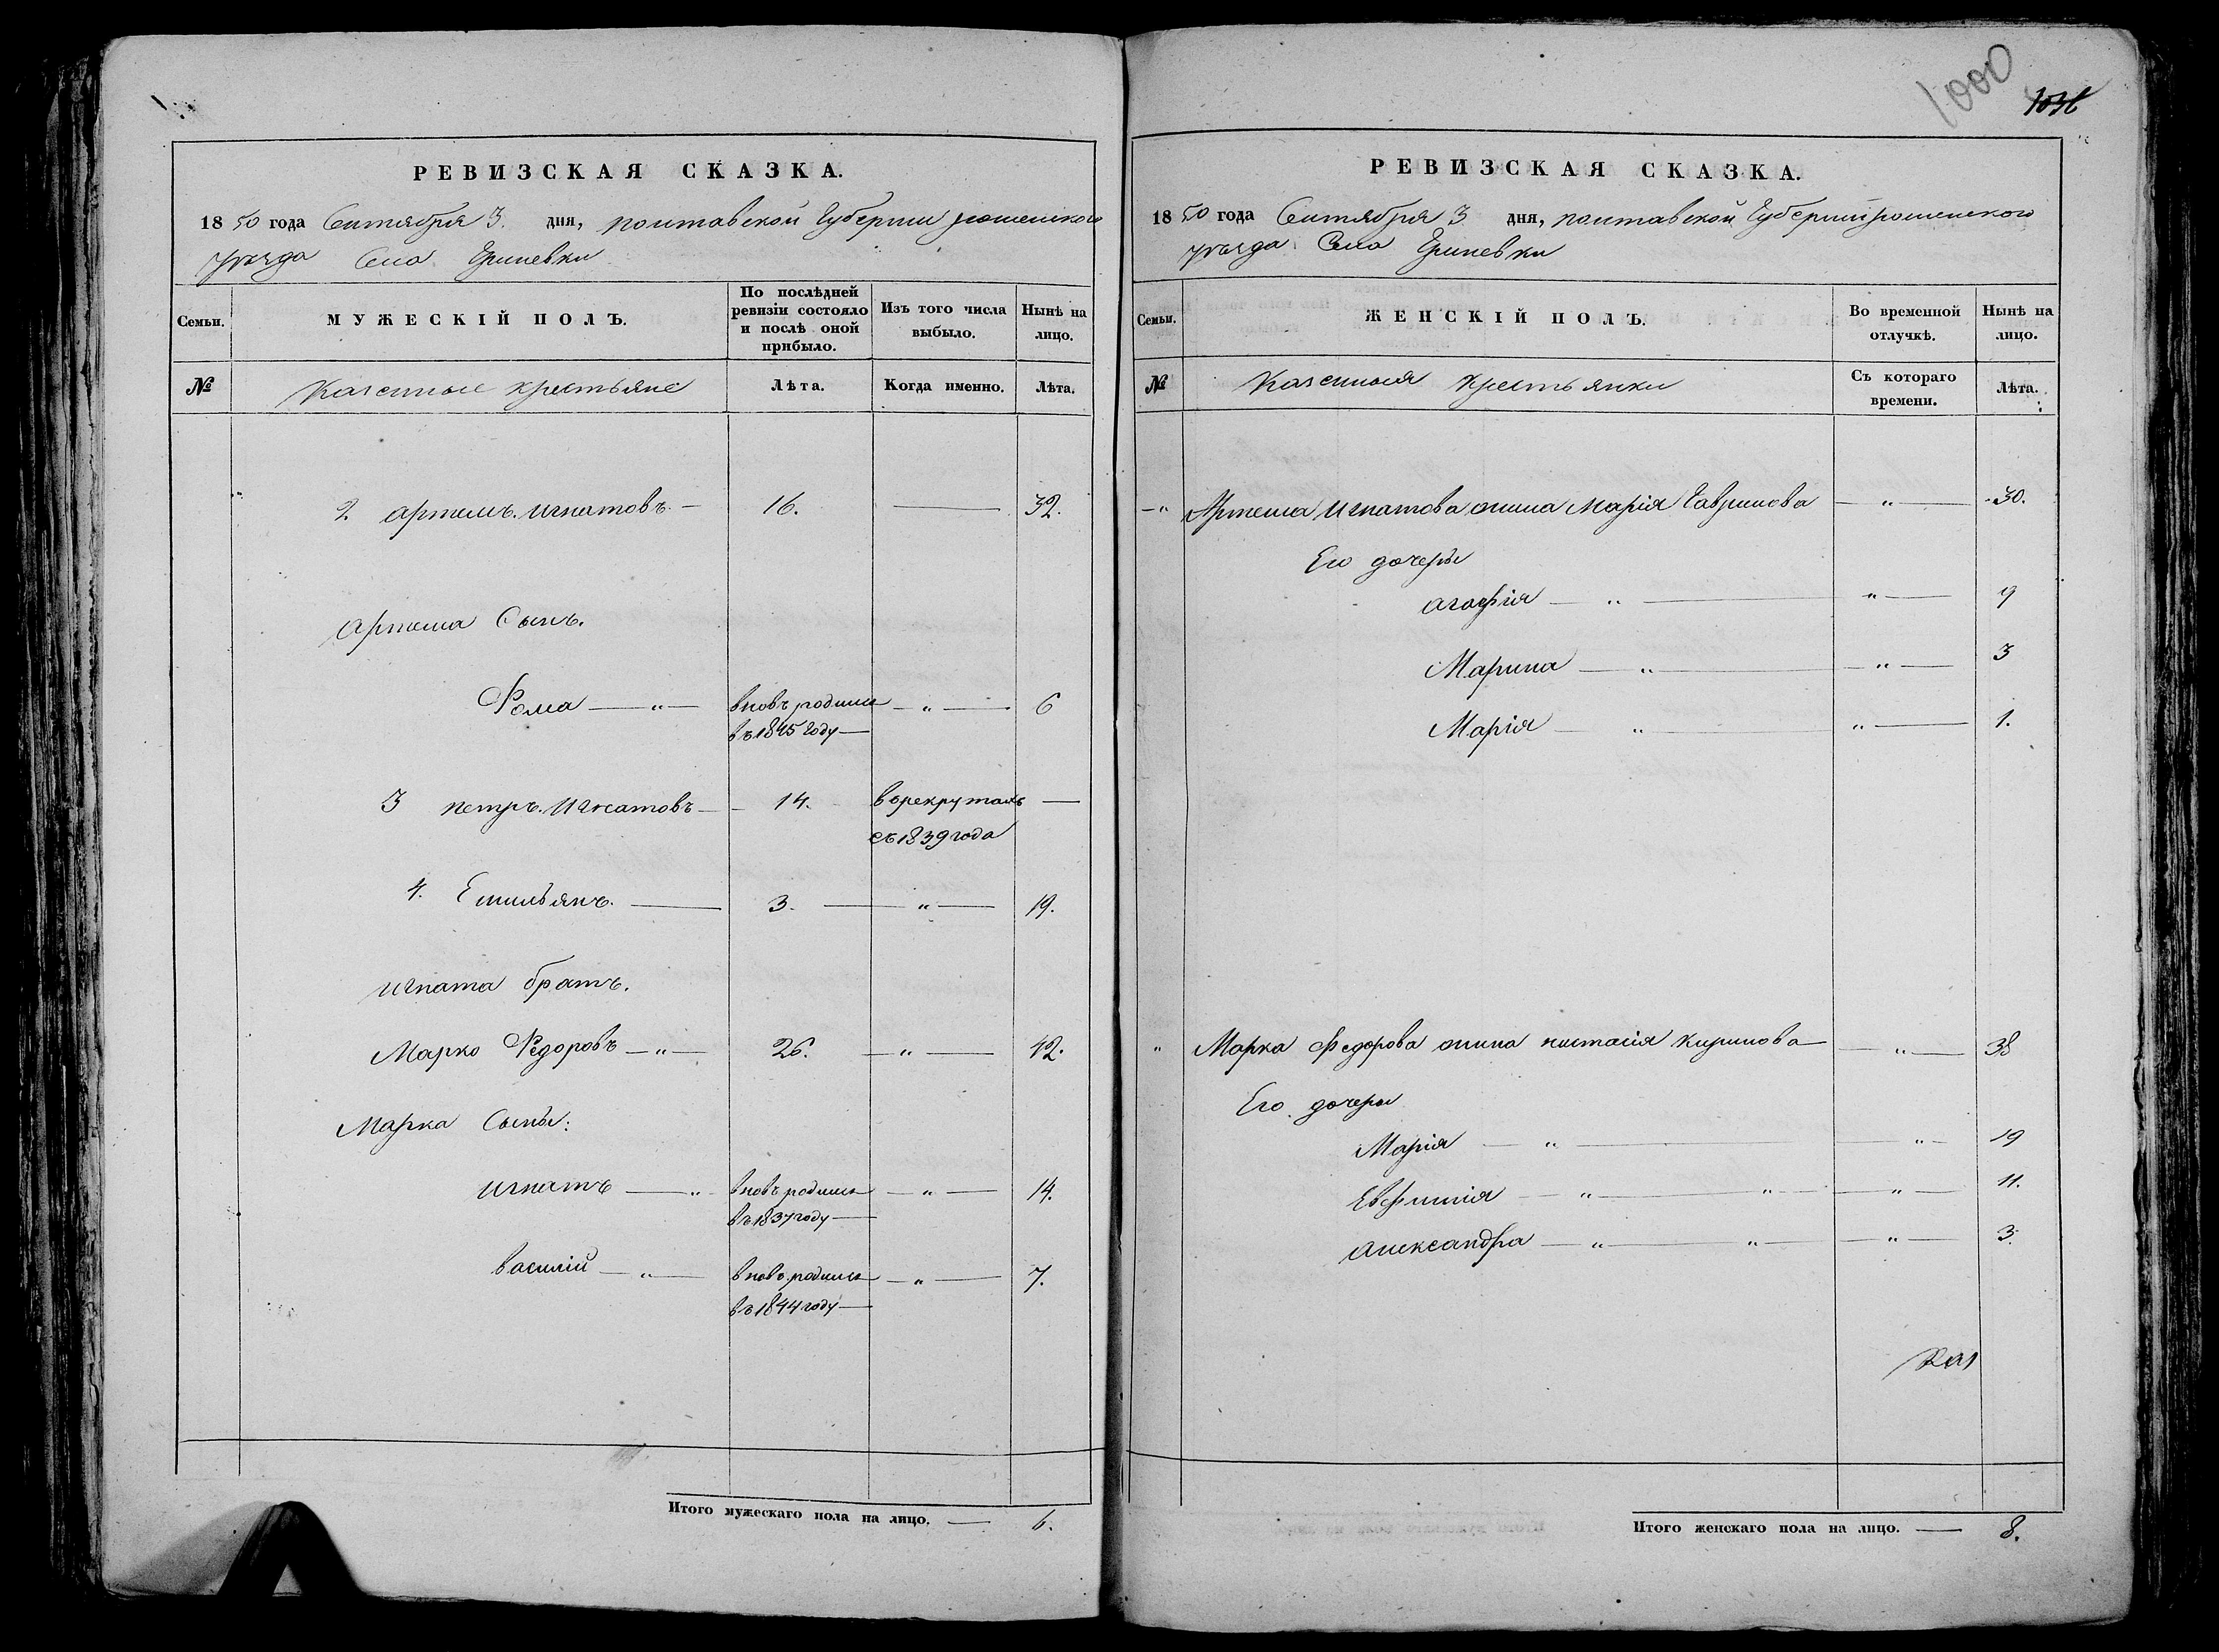 РЕВИЗСКАЯ СКАЗКА.
1850 года Сентября 3. дня, полтавской Губернии роменского
уезда Села Гриневки
Семьи.
МУЖЕСКІЙ ПОЛЪ.
По послѣдней ревизіи состояло и послѣ оной прибыло.
Изъ того числа выбыло.
Нынѣ на лицо.
№
Казенные крестьяне
Лѣта.
Когда именно.
Лѣта.
2 Артемъ Игнатовъ — 16. — 32.
Артема Сынъ.
Фома — " — вновь родился — " — 6
въ 1845 году —
3 петръ Игнатовъ — 14. в рекрутахъ —
съ 1839 года
4. Емильянъ. — 3. — " — 19.
игната братъ.
Марко Федоровъ — " — 26. — " — 42.
Марка Сыны:
игнатъ — " вновь родился — " — 14.
въ 1837 году —
василій — " — вновь родился — " — 7.
въ 1844 году —
Итого мужескаго пола на лицо. — 6.
1000
РЕВИЗСКАЯ СКАЗКА.
1850 года Сентября 3 дня, полтавской Губерніи роменского
уезда Села Гриневки
Семьи.
ЖЕНСКІЙ ПОЛЪ.
Во временной отлучкѣ.
Нынѣ на лицо.
№
Казенныя крестьянки
Съ котораго времени.
Лѣта.
— " Артема Игнатова жина Марія Гаврилова — " — 30.
Его дочери
агафія — " — " — 9
Марина — " — " — 3
Марія — " — " — 1.
" Марка Федорова жина настасія Кирилова — " — 38
Его дочери
Марія — " — " — 19
Евфимія — " — " — " — 11.
александра — " — " — " — 3.
Итого женскаго пола на лицо. — 8.